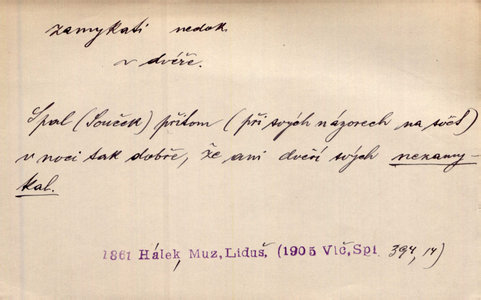 zamykati nedok.
v dvéře.
Spal (Souček) přitom (při svých názorech na svět)
v noci tak dobře, že ani dveří svých nezamy-
kal.
1861 Hálek, Muz. Liduš. (1905 Vlč, Spi 394, 14)